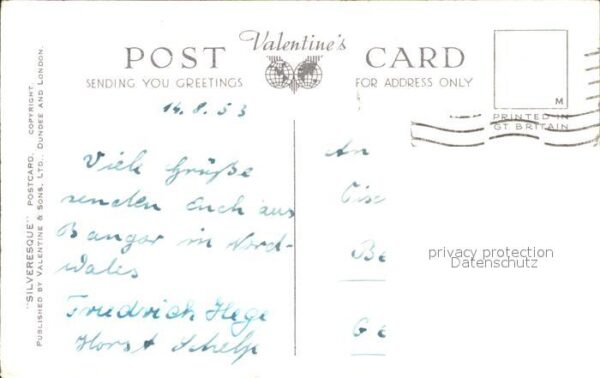 "SILVERESQUE" POSTCARD. COPYRIGHT.
PUBLISHED BY VALENTINE & SONS, LTD., DUNDEE AND LONDON.
Valentine's
POST CARD
SENDING YOU GREETINGS
FOR ADDRESS ONLY
M
PRINTED IN
GT BRITAIN
14.8.53
Viele Grüße
senden Euch aus
Bangor in Nord-
wales
Friedrich Hege
Horst
An
Be
Ge
privacy protection
Datenschutz